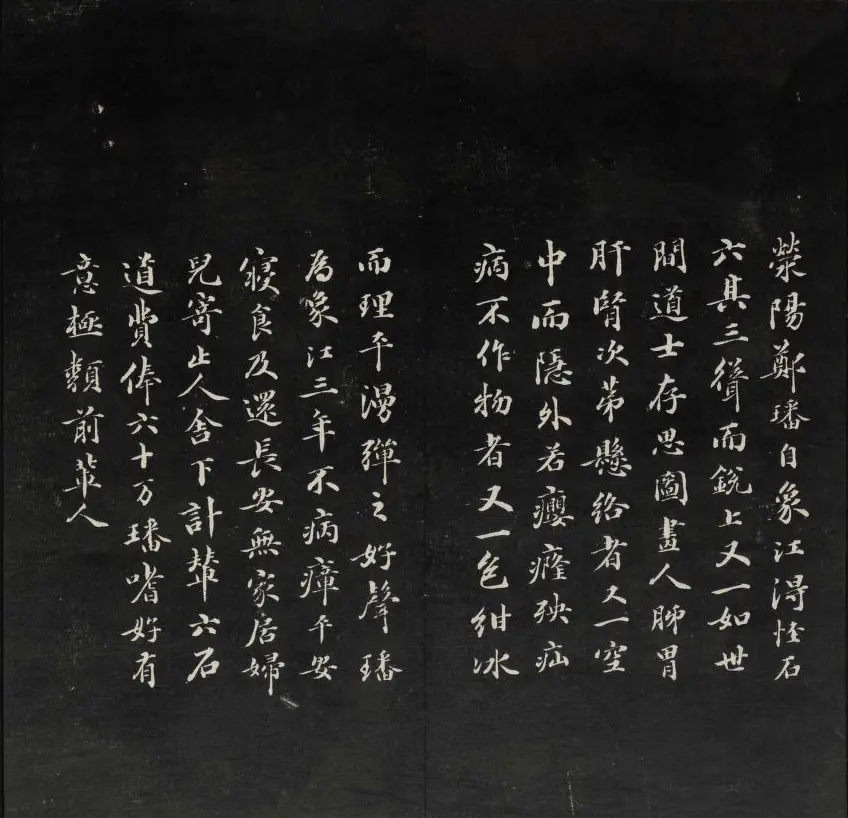 滎陽鄭璠自象江得怪石
六其三聳而銳上又一如世
間道士存思圖畫人肺胃
肝腎次第懸絡者又一空
中而隱外若癭癰殃疝
病不作物者又一色紺冰
而理平漫彈之好聲璠
為象江三年不病瘴平安
寢食及還長安無家居婦
兒寄止人舍下計輦六石
道費俸六十万璠嗜好有
意極類前輩人